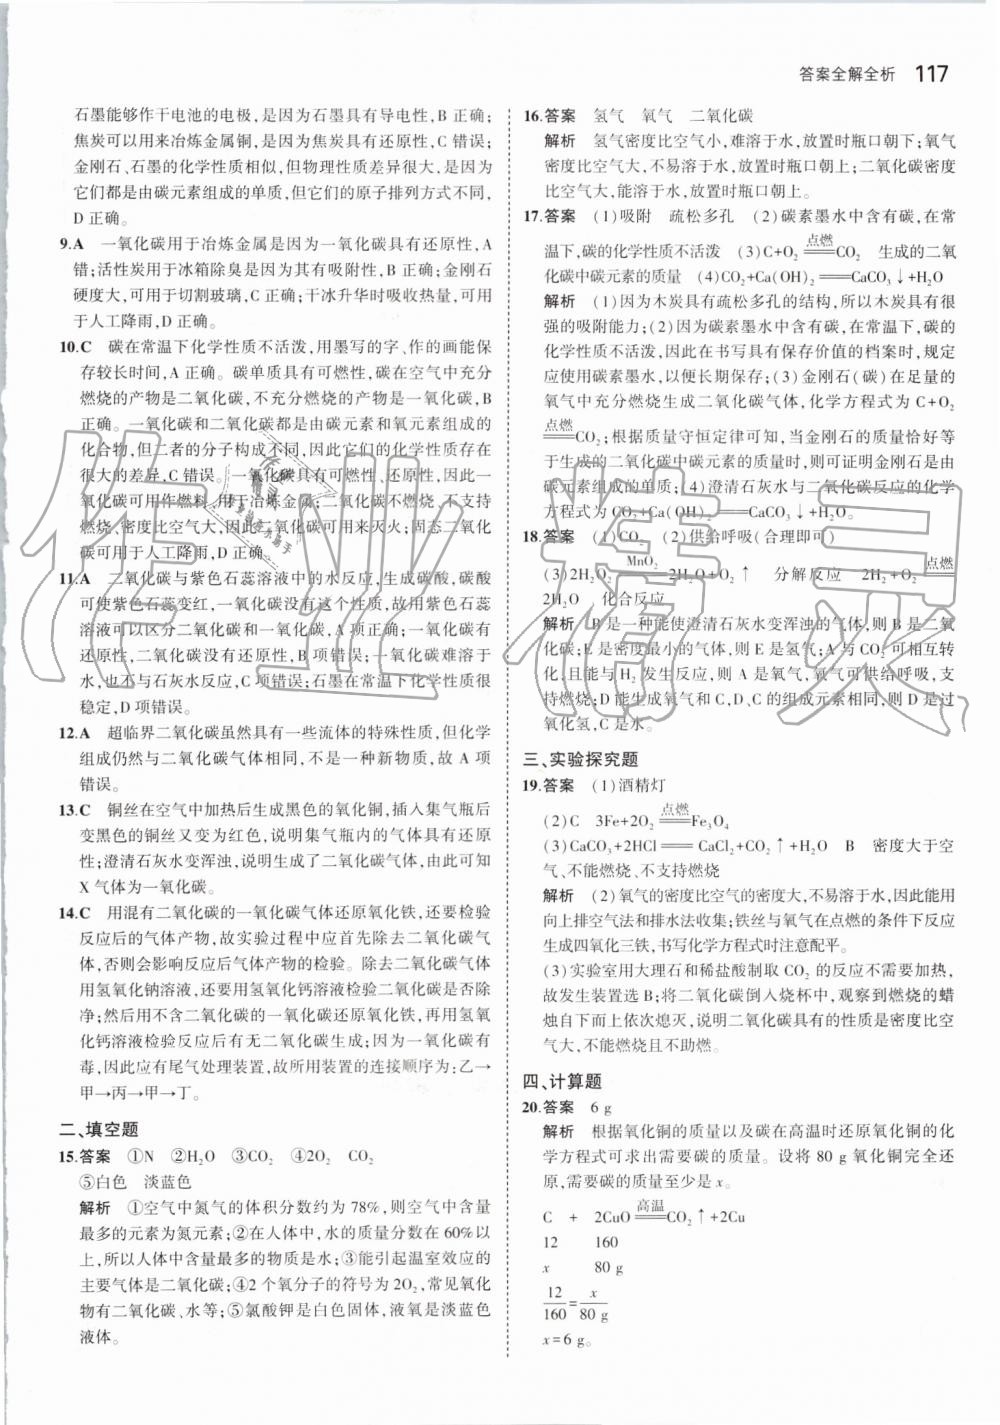 答案全解全析 117
石墨能够作干电池的电极,是因为石墨具有导电性,B 正确;
焦炭可以用来冶炼金属铜,是因为焦炭具有还原性,C 错误;
金刚石、石墨的化学性质相似,但物理性质差异很大,是因为
它们都是由碳元素组成的单质,但它们的原子排列方式不同,
D 正确。
9.A 一氧化碳用于冶炼金属是因为一氧化碳具有还原性,A
错;活性炭用于冰箱除臭是因为其有吸附性,B 正确;金刚石
硬度大,可用于切割玻璃,C 正确;干冰升华时吸收热量,可用
于人工降雨,D 正确。
10.C 碳在常温下化学性质不活泼,用墨写的字、作的画能保
存较长时间,A 正确。碳单质具有可燃性,碳在空气中充分
燃烧的产物是二氧化碳,不充分燃烧的产物是一氧化碳,B
正确。一氧化碳和二氧化碳都是由碳元素和氧元素组成的
化合物,但二者的分子构成不同,因此它们的化学性质存在
很大的差异,C 错误。一氧化碳具有可燃性、还原性,因此一
氧化碳可用作燃料、用于冶炼金属;二氧化碳不燃烧、不支持
燃烧、密度比空气大,因此二氧化碳可用来灭火;固态二氧化
碳可用于人工降雨,D 正确。
11.A 二氧化碳与紫色石蕊溶液中的水反应,生成碳酸,碳酸
可使紫色石蕊变红,一氧化碳没有这个性质,故用紫色石蕊
溶液可以区分二氧化碳和一氧化碳,A 项正确;一氧化碳有
还原性,二氧化碳没有还原性,B 项错误;一氧化碳难溶于
水,也不与石灰水反应,C 项错误;石墨在常温下化学性质很
稳定,D 项错误。
12.A 超临界二氧化碳虽然具有一些流体的特殊性质,但化学
组成仍然与二氧化碳气体相同,不是一种新物质,故 A 项
错误。
13.C 铜丝在空气中加热后生成黑色的氧化铜,插入集气瓶后
变黑色的铜丝又变为红色,说明集气瓶内的气体具有还原
性;澄清石灰水变浑浊,说明生成了二氧化碳气体,由此可知
X 气体为一氧化碳。
14.C 用混有二氧化碳的一氧化碳气体还原氧化铁,还要检验
反应后的气体产物,故实验过程中应首先除去二氧化碳气
体,否则会影响反应后气体产物的检验。除去二氧化碳气体
用氢氧化钠溶液,还要用氢氧化钙溶液检验二氧化碳是否除
净;然后用不含二氧化碳的一氧化碳还原氧化铁,再用氢氧
化钙溶液检验反应后有无二氧化碳生成;因为一氧化碳有
毒,因此应有尾气处理装置,故所用装置的连接顺序为:乙→
甲→丙→甲→丁。
二、填空题
15.答案 ①N ②H₂O ③CO₂ ④2O₂ CO₂
⑤白色 淡蓝色
解析 ①空气中氮气的体积分数约为 78%,则空气中含量
最多的元素为氮元素;②在人体中,水的质量分数在 60%以
上,所以人体中含量最多的物质是水;③能引起温室效应的
主要气体是二氧化碳;④2 个氧分子的符号为 2O₂,常见氧化
物有二氧化碳、水等;⑤氯酸钾是白色固体,液氧是淡蓝色
液体。
16.答案 氢气 氧气 二氧化碳
解析 氢气密度比空气小,难溶于水,放置时瓶口朝下;氧气
密度比空气大,不易溶于水,放置时瓶口朝上;二氧化碳密度
比空气大,能溶于水,放置时瓶口朝上。
17.答案 (1)吸附 疏松多孔 (2)碳素墨水中含有碳,在常
温下,碳的化学性质不活泼 (3)C+O₂ 点燃═══ CO₂ 生成的二氧
化碳中碳元素的质量 (4)CO₂+Ca(OH)₂═══CaCO₃↓+H₂O
解析 (1)因为木炭具有疏松多孔的结构,所以木炭具有很
强的吸附能力;(2)因为碳素墨水中含有碳,在常温下,碳的
化学性质不活泼,因此在书写具有保存价值的档案时,规定
应使用碳素墨水,以便长期保存;(3)金刚石(碳)在足量的
氧气中充分燃烧生成二氧化碳气体,化学方程式为 C+O₂
点燃═══ CO₂;根据质量守恒定律可知,当金刚石的质量恰好等
于生成的二氧化碳中碳元素的质量时,则可证明金刚石是由
碳元素组成的单质;(4)澄清石灰水与二氧化碳反应的化学
方程式为 CO₂+Ca(OH)₂═══CaCO₃↓+H₂O。
18.答案 (1)CO₂ (2)供给呼吸(合理即可)
(3)2H₂O₂ MnO₂═══ 2H₂O+O₂↑ 分解反应 2H₂+O₂ 点燃═══
2H₂O 化合反应
解析 B 是一种能使澄清石灰水变浑浊的气体,则 B 是二氧
化碳;E 是密度最小的气体,则 E 是氢气;A 与 CO₂ 可相互转
化,且能与 H₂ 发生反应,则 A 是氧气,氧气可供给呼吸,支
持燃烧;D 能生成氧气和 C,D、C 的组成元素相同,则 D 是过
氧化氢,C 是水。
三、实验探究题
19.答案 (1)酒精灯
(2)C 3Fe+2O₂ 点燃═══ Fe₃O₄
(3)CaCO₃+2HCl═══CaCl₂+CO₂↑+H₂O B 密度大于空
气、不能燃烧、不支持燃烧
解析 (2)氧气的密度比空气的密度大,不易溶于水,因此能用
向上排空气法和排水法收集;铁丝与氧气在点燃的条件下反应
生成四氧化三铁,书写化学方程式时注意配平。
(3)实验室用大理石和稀盐酸制取 CO₂ 的反应不需要加热,
故发生装置选 B;将二氧化碳倒入烧杯中,观察到燃烧的蜡
烛自下而上依次熄灭,说明二氧化碳具有的性质是密度比空
气大,不能燃烧且不助燃。
四、计算题
20.答案 6 g
解析 根据氧化铜的质量以及碳在高温时还原氧化铜的化
学方程式可求出需要碳的质量。设将 80 g 氧化铜完全还
原,需要碳的质量至少是 x。
C + 2CuO 高温═══ CO₂↑+2Cu
12 160
x 80 g
12/160=x/80 g
x=6 g。
作业精灵